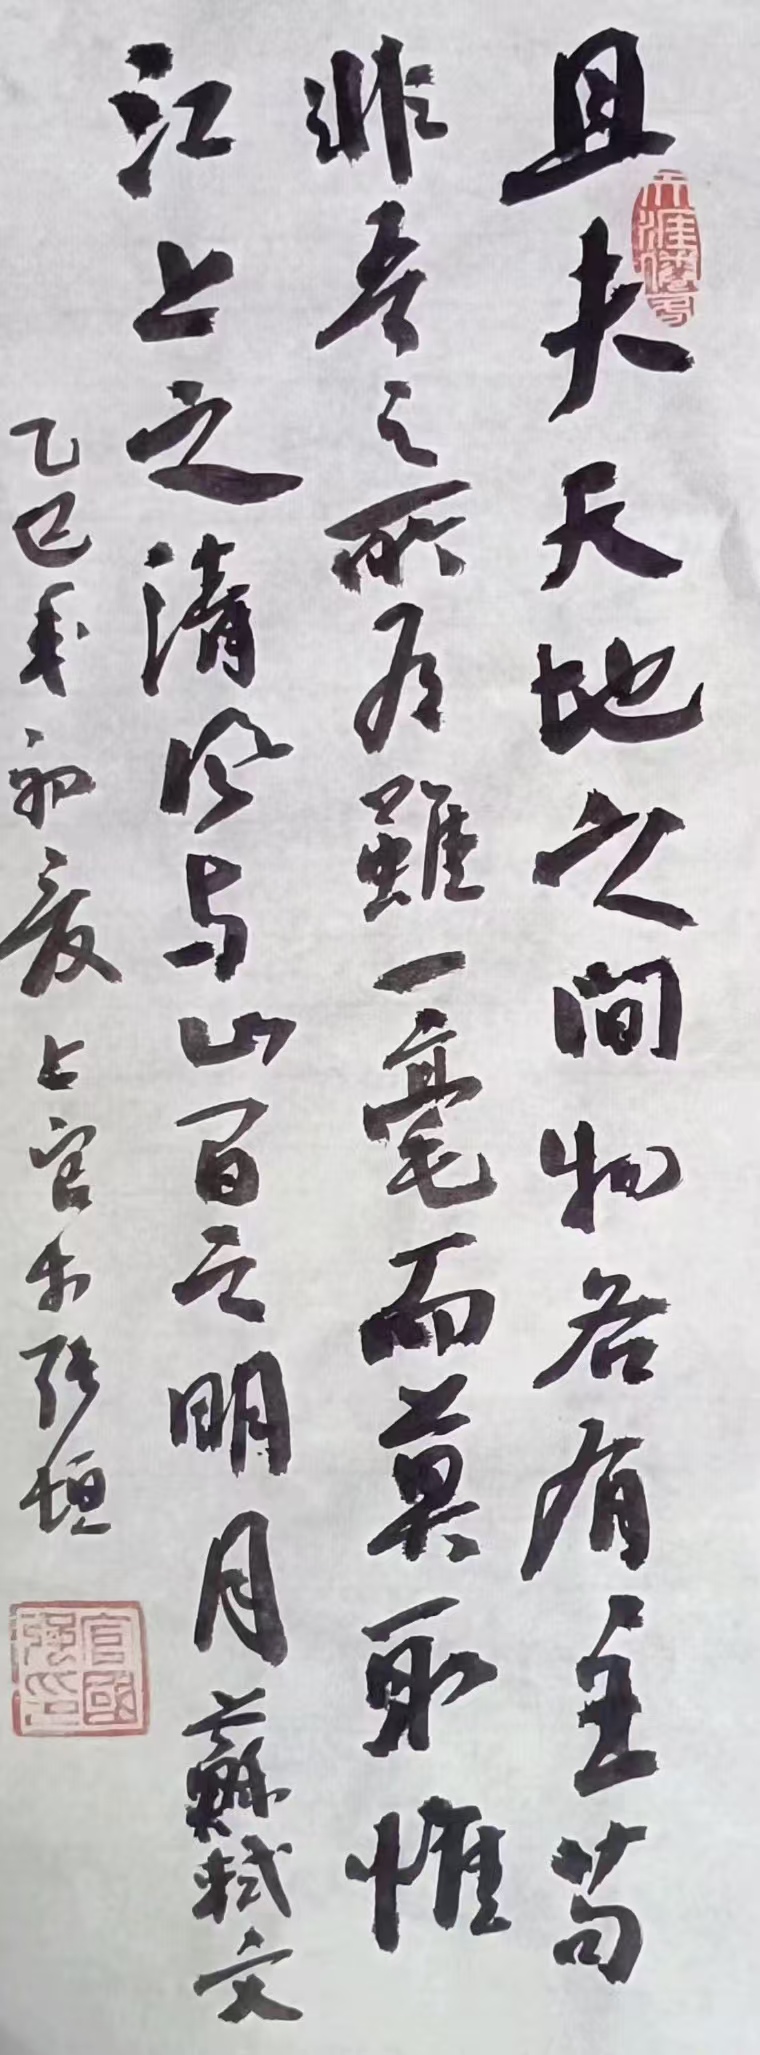 且夫天地之间物各有主苟
非吾之所有雖一毫而莫取惟
江上之清风与山间之明月蘇軾文
乙巳年初夏上官木张垣